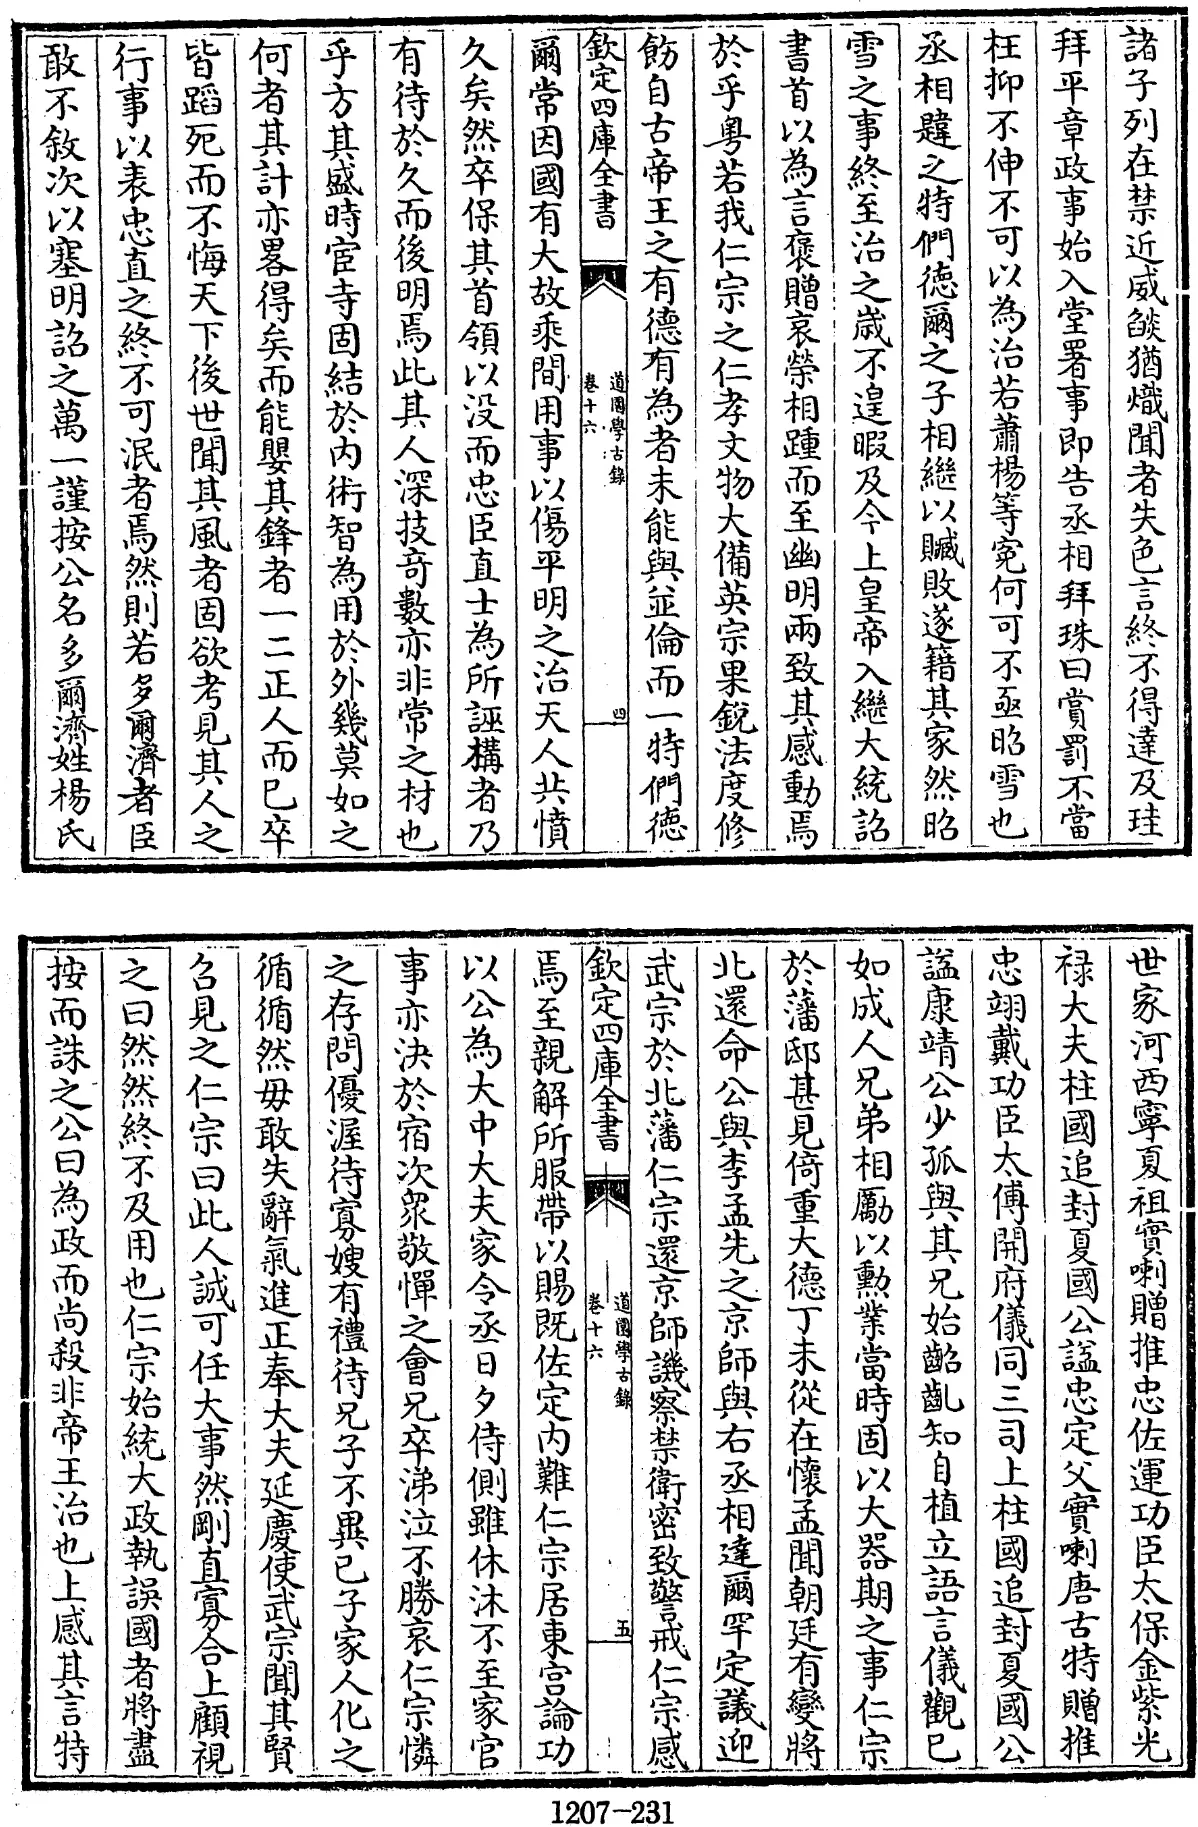 諸子列在禁近威燄猶熾聞者失色言終不得達及珪
拜平章政事始入堂署事即告丞相拜珠曰賞罰不當
枉抑不伸不可以為治若蕭楊等寃何可不亟昭雪也
丞相韙之特們德爾之子相繼以贓敗遂籍其家然昭
雪之事終至治之歳不遑暇及今上皇帝入繼大統詔
書首以為言褒贈哀榮相踵而至幽明兩致其感動焉
於乎粤若我仁宗之仁孝文物大備英宗果銳法度修
飭自古帝王之有德有為者未能與並倫而一特們德
欽定四庫全書
道園學古錄
卷十六
四
爾常因國有大故乘間用事以傷平明之治天人共憤
久矣然卒保其首領以没而忠臣直士為所誣構者乃
有待於久而後明焉此其人深技奇數亦非常之材也
乎方其盛時宦寺固結於内術智為用於外幾莫如之
何者其計亦畧得矣而能嬰其鋒者一二正人而已卒
皆蹈死而不悔天下後世聞其風者固欲考見其人之
行事以表忠直之終不可泯者焉然則若多爾濟者臣
敢不敘次以塞明詔之萬一謹按公名多爾濟姓楊氏
世家河西寧夏祖實喇贈推忠佐運功臣太保金紫光
禄大夫柱國追封夏國公諡忠定父實喇唐古特贈推
忠翊戴功臣太傅開府儀同三司上柱國追封夏國公
諡康靖公少孤與其兄始齠齔知自植立語言儀觀已
如成人兄弟相勵以勲業當時固以大器期之事仁宗
於藩邸甚見倚重大德丁未從在懷孟聞朝廷有變將
北還命公與李孟先之京師與右丞相達爾罕定議迎
武宗於北藩仁宗還京師譏察禁衛密致警戒仁宗感
欽定四庫全書
道園學古錄
卷十六
五
焉至親解所服帶以賜既佐定内難仁宗居東宫論功
以公為大中大夫家令丞日夕侍側雖休沐不至家官
事亦決於宿次衆敬憚之會兄卒涕泣不勝哀仁宗憐
之存問優渥待寡嫂有禮待兄子不異已子家人化之
循循然毋敢失辭氣進正奉大夫延慶使武宗聞其賢
召見之仁宗曰此人誠可任大事然剛直寡合上顧視
之曰然然終不及用也仁宗始統大政執誤國者將盡
按而誅之公曰為政而尚殺非帝王治也上感其言特
1207-231